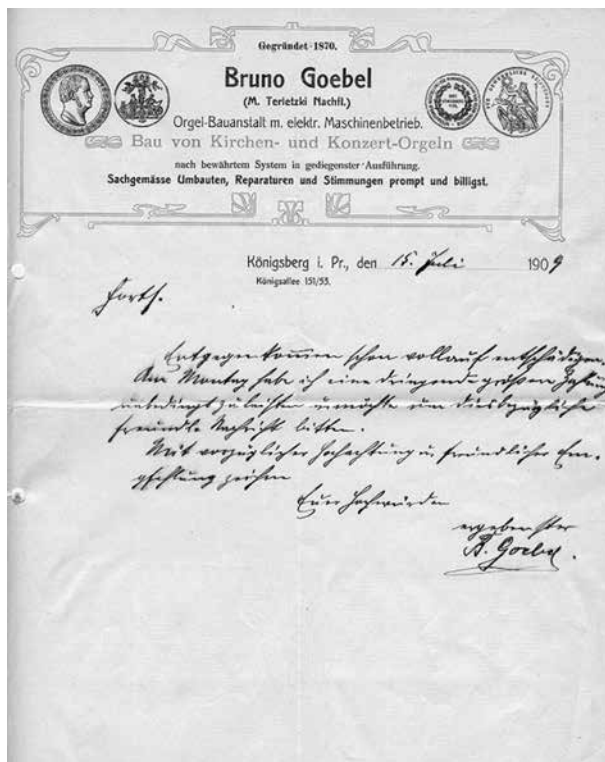 Gegründet 1870.
Bruno Goebel
(M. Terletzki Nachfl.)
Orgel-Bauanstalt m. elektr. Maschinenbetrieb.
Bau von Kirchen- und Konzert-Orgeln
nach bewährtem System in gediegenster Ausführung.
Sachgemässe Umbauten, Reparaturen und Stimmungen prompt und billigst.
Königsberg i. Pr., den 15. Juli 1909
Königsallee 151/53.
Forts.
Entgegenkommen schon vollauf entschädigen.
Am Montag habe ich eine dringende größere Zahlung
unbedingt zu leisten u. möchte um diesbezügliche
freundl. Nachricht bitten.
Mit vorzüglicher Hochachtung u. freundlicher Em-
pfehlung zeichne
Euer Hochwürden
ergebenster
B. Goebel.